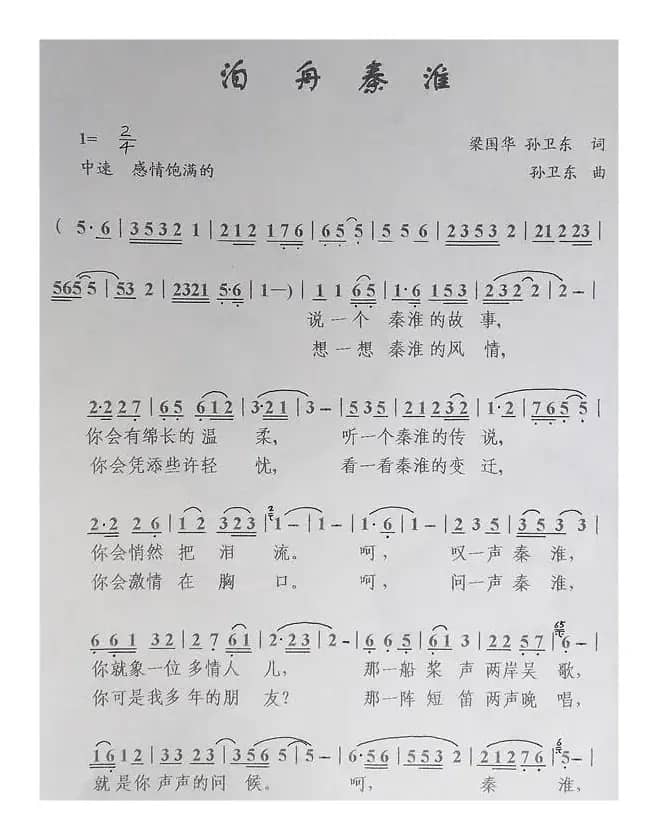 泊舟秦淮
1= 2/4
梁国华 孙卫东 词
中速 感情饱满的
孙卫东 曲
( 5· 6 | 3 5 3 2 1 | 2 1 2 1 7 6 | 6 5 5 | 5 5 6 | 2 3 5 3 2 | 2 1 2 2 3 |
5 6 5 5 | 5 3 2 | 2 3 2 1 5·6 | 1 — ) | 1 1 6 5 | 1·6 1 5 3 | 2 3 2 2 | 2 — |
说 一 个 秦淮 的故 事,
想 一 想 秦淮 的风 情,
2·2 2 7 | 6 5 6 1 2 | 3·2 1 | 3 — | 5 3 5 | 2 1 2 3 2 | 1· 2 | 7 6 5 5 |
你会有绵长的 温 柔, 听一个秦淮的传 说,
你会凭添些许轻 忧, 看一看秦淮的变 迁,
2·2 2 6 | 1 2 3 2 3 | 2 1 — | 1 — | 1· 6 | 2 3 5 | 3 5 3 3 |
你会悄然 把 泪 流。 呵, 叹一声 秦 淮,
你会激情 在 胸 口。 呵, 问一声 秦 淮,
6 6 1 3 2 | 2 7 6 1 | 2· 2 3 | 2 — | 6 6 5 | 6 1 3 | 2 2 5 7 | 65 6 — |
你就象一位 多情人 儿, 那一船 桨 声 两岸吴 歌,
你可是我多 年的朋 友? 那一阵 短 笛 两声晚 唱,
1 6 1 2 | 3 2 3 3 | 3 5 6 5 | 5 — | 6·5 6 | 5 5 3 5 | 2 1 2 7 6 | 6 5 — |
就 是你 声声的问 候。 呵, 秦 淮,